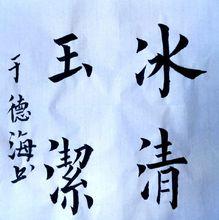 冰清
玉潔
于德海书